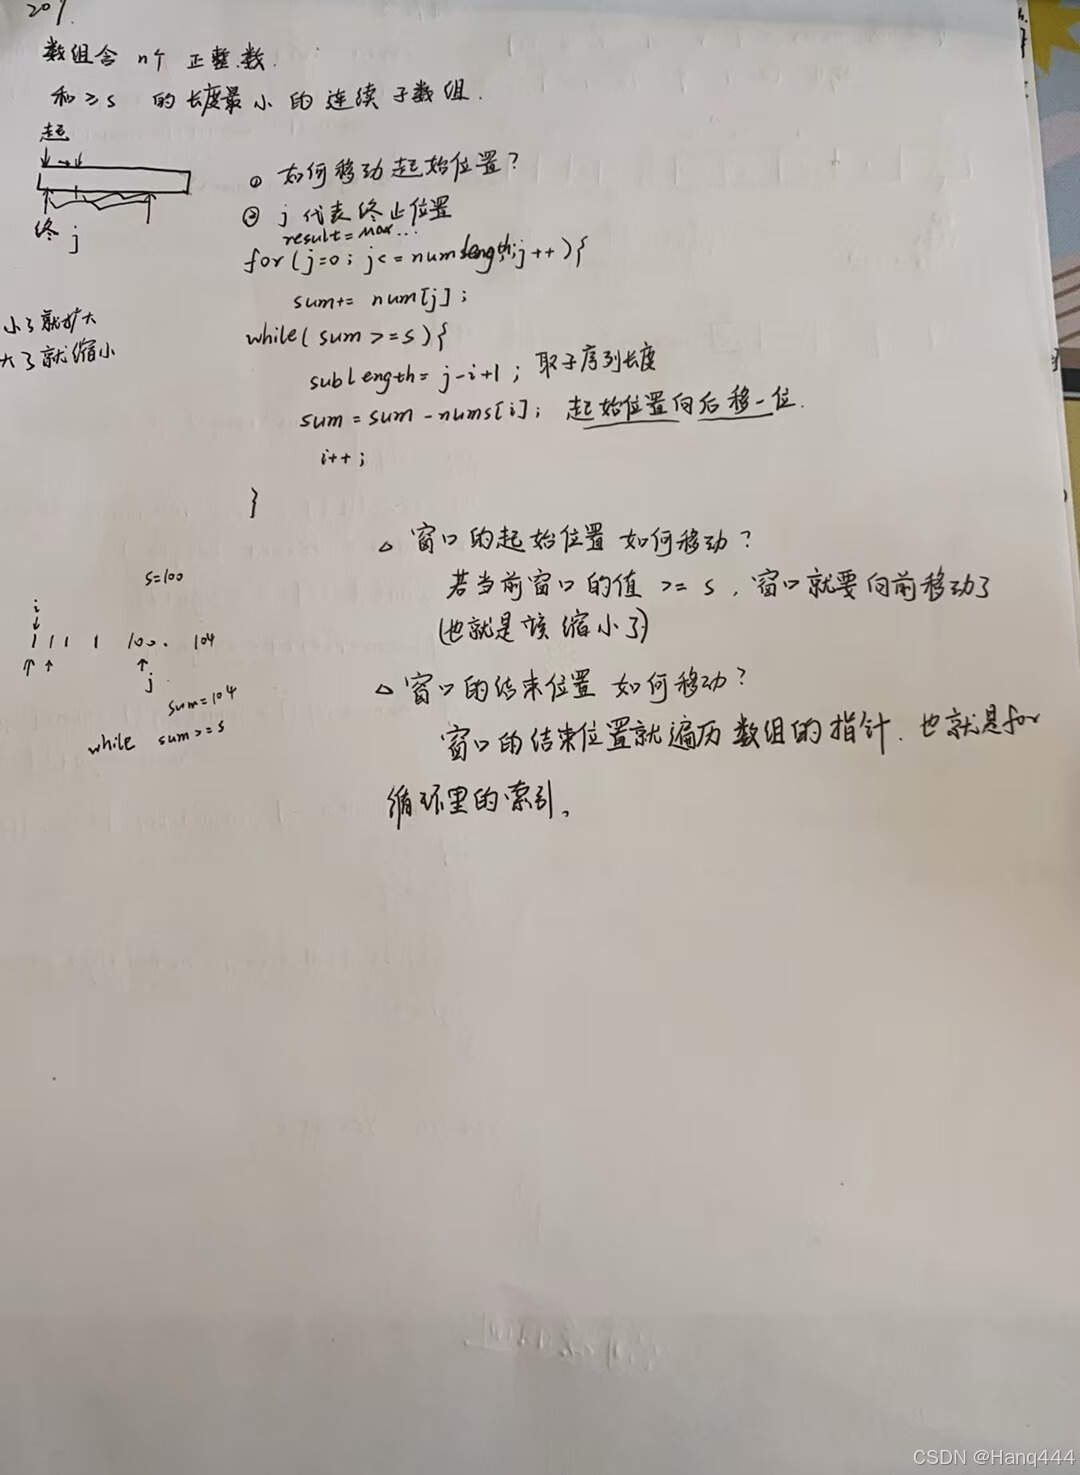 209.
数组含 n个 正整数.
和≥s 的长度最小的连续子数组.
起
终 j
① 如何移动起始位置?
② j 代表终止位置
result = Max...
for(j=0; j<=nums.length; j++){
sum+= num[j];
小了就扩大
大了就缩小
while(sum>=s){
subLength= j-i+1; 取子序列长度
sum=sum-nums[i]; 起始位置向后移一位.
i++;
}
△ 窗口的起始位置 如何移动?
若当前窗口的值 >= s, 窗口就要向前移动了
(也就是该缩小了)
s=100
i
1 1 1 1 100. 104
j
sum=104
while sum>=s
△ 窗口的结束位置 如何移动?
窗口的结束位置就遍历数组的指针. 也就是for
循环里的索引。
CSDN @Hanq444